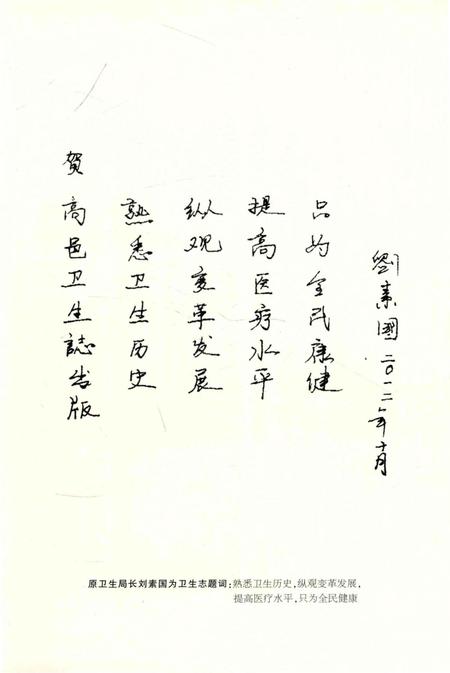 賀高邑卫生誌出版
熟悉卫生历史
纵观变革发展
提高医疗水平
只为全民康健
劉素國 二〇一二年十月
原卫生局长刘素国为卫生志题词:熟悉卫生历史,纵观变革发展,
提高医疗水平,只为全民健康